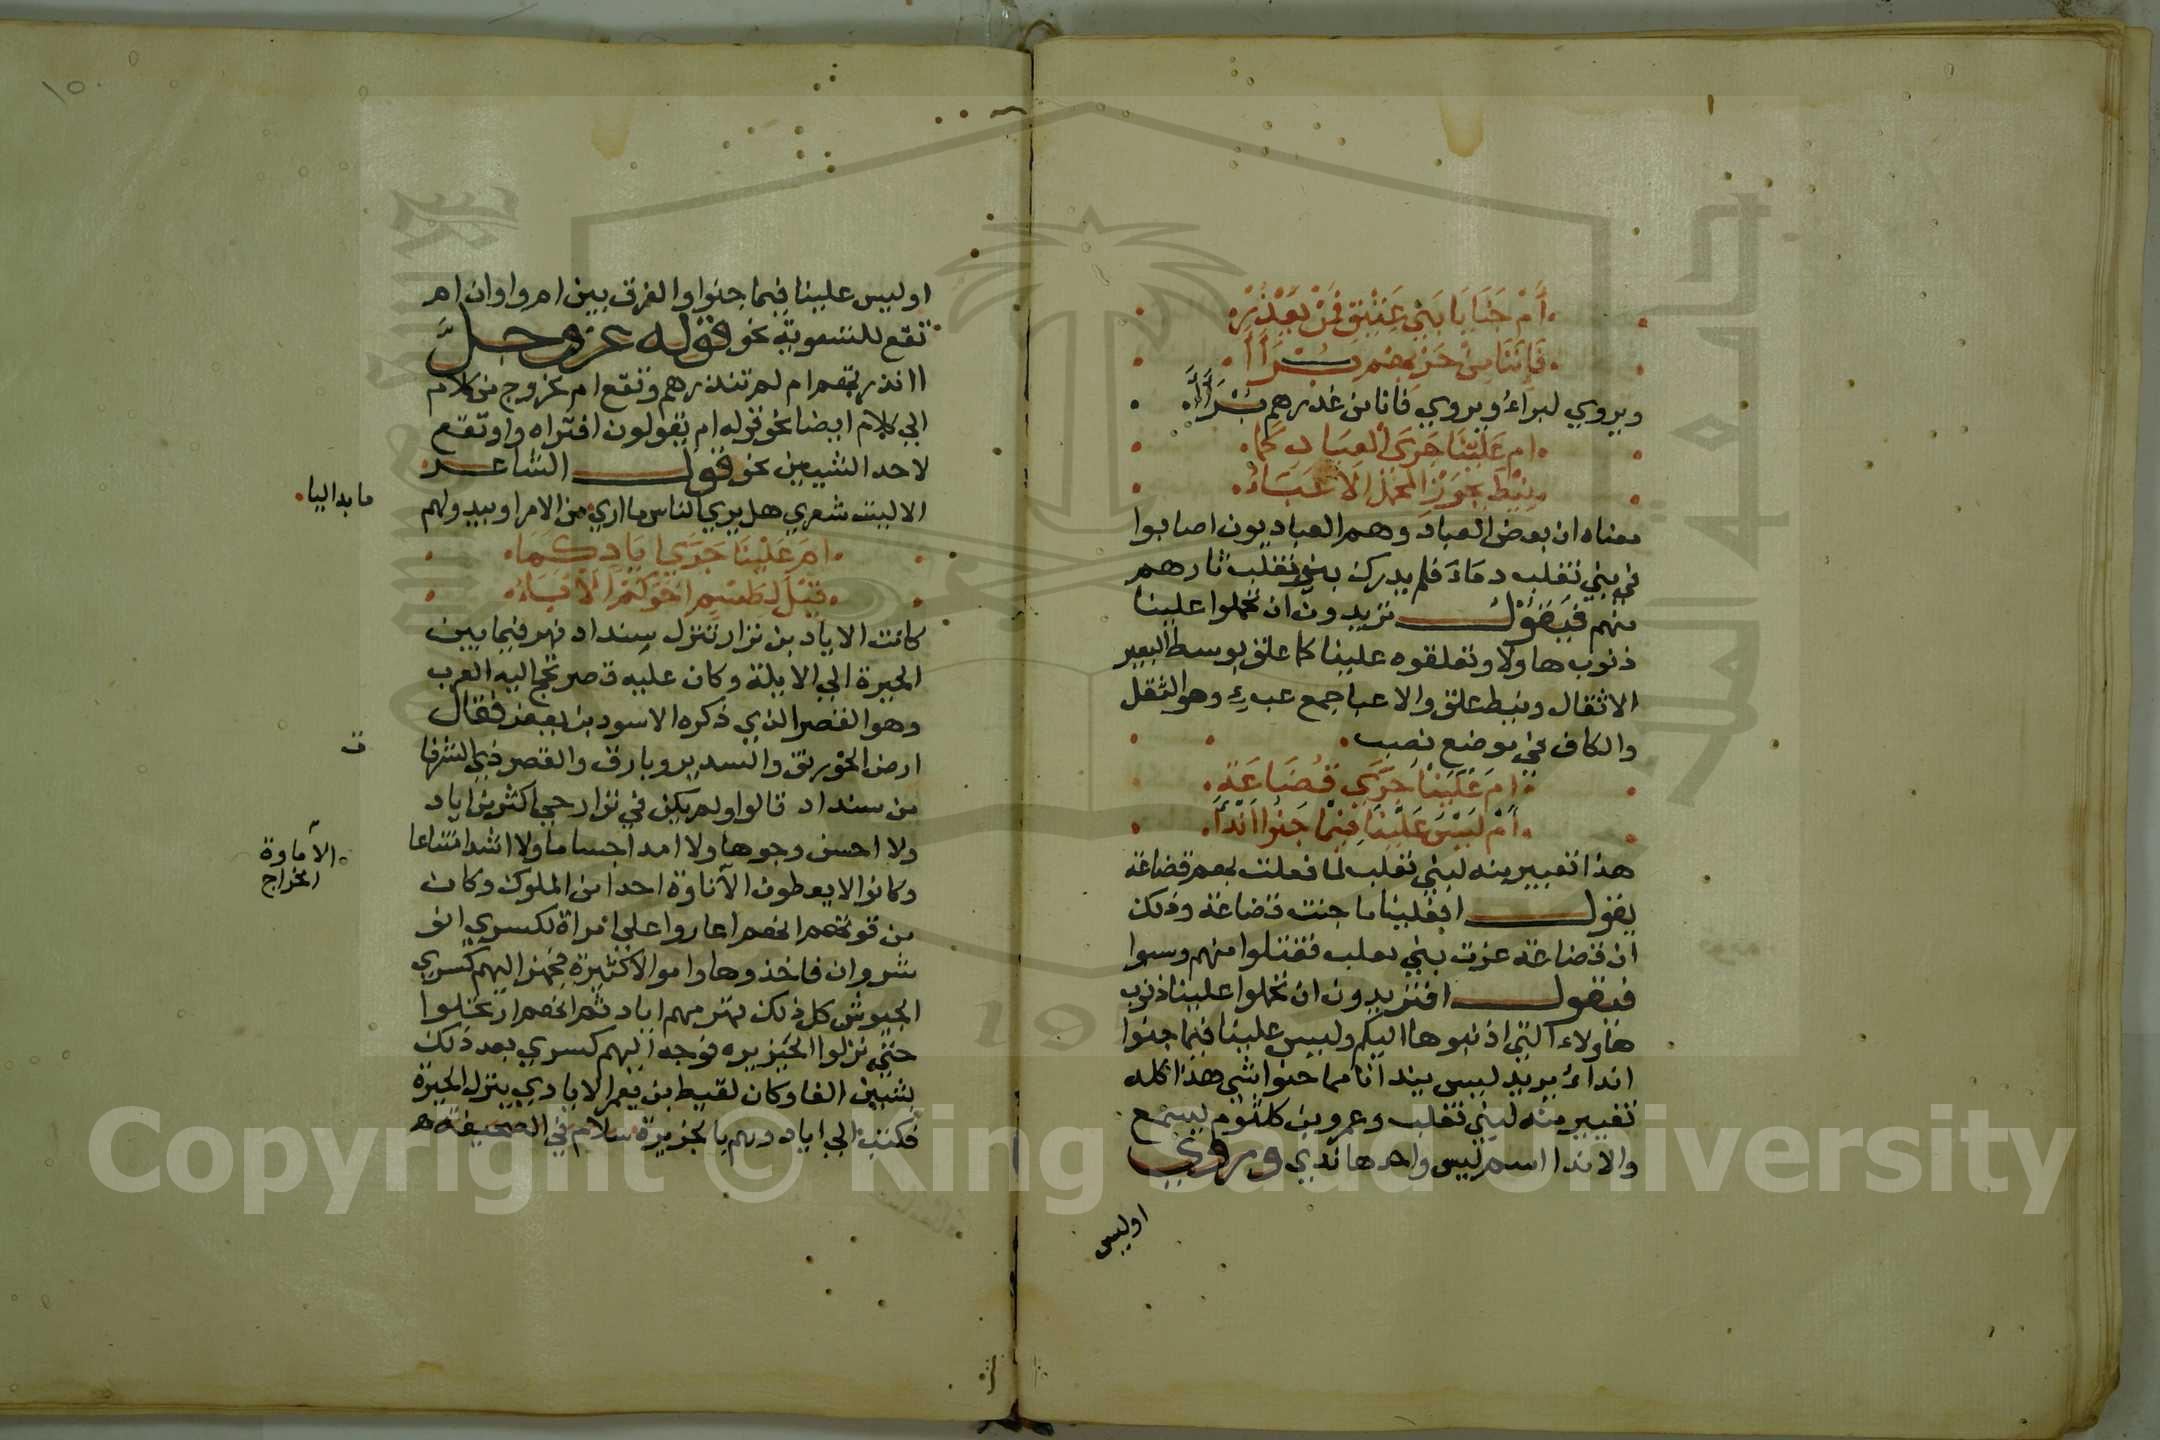 ام جنايا بني عتيق فمن يغدر
فاننا من حربهم براآ
ويروي لبراء ويروي فانا من غدرهم براآ
ام علينا جرى العباد كما
نيط بجوز المحمل الاعباء
معناه ان بعض العباد وهم العباديون اصابوا
في بني تغلب دماء فلم يدرك بنو تغلب ثارهم
منهم فيقول تريدون ان تحملوا علينا
ذنوب هاولاء وتعلقوه علينا كما علق بوسط البعير
الاثقال ونيط علق والاعبا جمع عبء وهو الثقل
والكاف في موضع نصب
ام علينا جرى قضاعة
ام ليس علينا فيما جنوا انداء
هذا تعيير منه لبني تغلب لما فعلت بهم قضاعة
يقول افعلينا ما جنت قضاعة وذلك
ان قضاعة غزت بني تغلب فقتلوا منهم وسبوا
فيقول افتريدون ان تحملوا علينا ذنوب
هاولاء التي اذنبوها اليكم وليس علينا فيما جنوا
انداء يريد ليس يندانا مما جنوا شي هذا كله
تعيير منه لبني تغلب وعمرو بن كلثوم يسمع
والاندا اسم ليس واحدها ندي ويروي
اوليس
اوليس علينا فيما جنوا والفرق بين ام واو ان ام
تقع للتسوية نحو قوله عز وجل
اانذرتهم ام لم تنذرهم وتقع ام لخروج من كلام
الي كلام ايضا نحو قوله ام يقولون افتراه واو تقع
لاحد الشيين نحو قول الشاعر
الا ليت شعري هل يري الناس ما اري من الامر او يبدو لهم
ما بدا ليا
ام علينا جرى اياد كما
قيل لطسم اخوكم الاباء
كانت الاياد بن نزار تنزل سنداد نهر فيما بين
الحيرة الي الابلة وكان عليه قصر تحج اليه العرب
وهو القصر الذي ذكره الاسود بن يعفر فقال
ارض الخورنق والسدير وبارق والقصر ذي الشرفا
ت
من سنداد قالوا ولم يكن في نزار حي اكثر من اياد
ولا احسن وجوها ولا امد اجساما ولا اشد امتناعا
وكانوا لا يعطون الاتاوة احدا من الملوك وكان
الاتاوة
الخراج
من قوتهم انهم اغاروا علي امراة لكسري انو
شروان فاخذوها واموالا كثيرة فجهز اليهم كسري
الجيوش كل ذلك تهزمهم اياد ثم انهم ارتحلوا
حتي نزلوا الجزيره فوجه اليهم كسري بعد ذلك
بستين الفا وكان لقيط بن يعمر الايادي ينزل الحيرة
فكتب الي اياد وهم بالجزيرة سلام في الصحيفة
Copyright © King Saud University